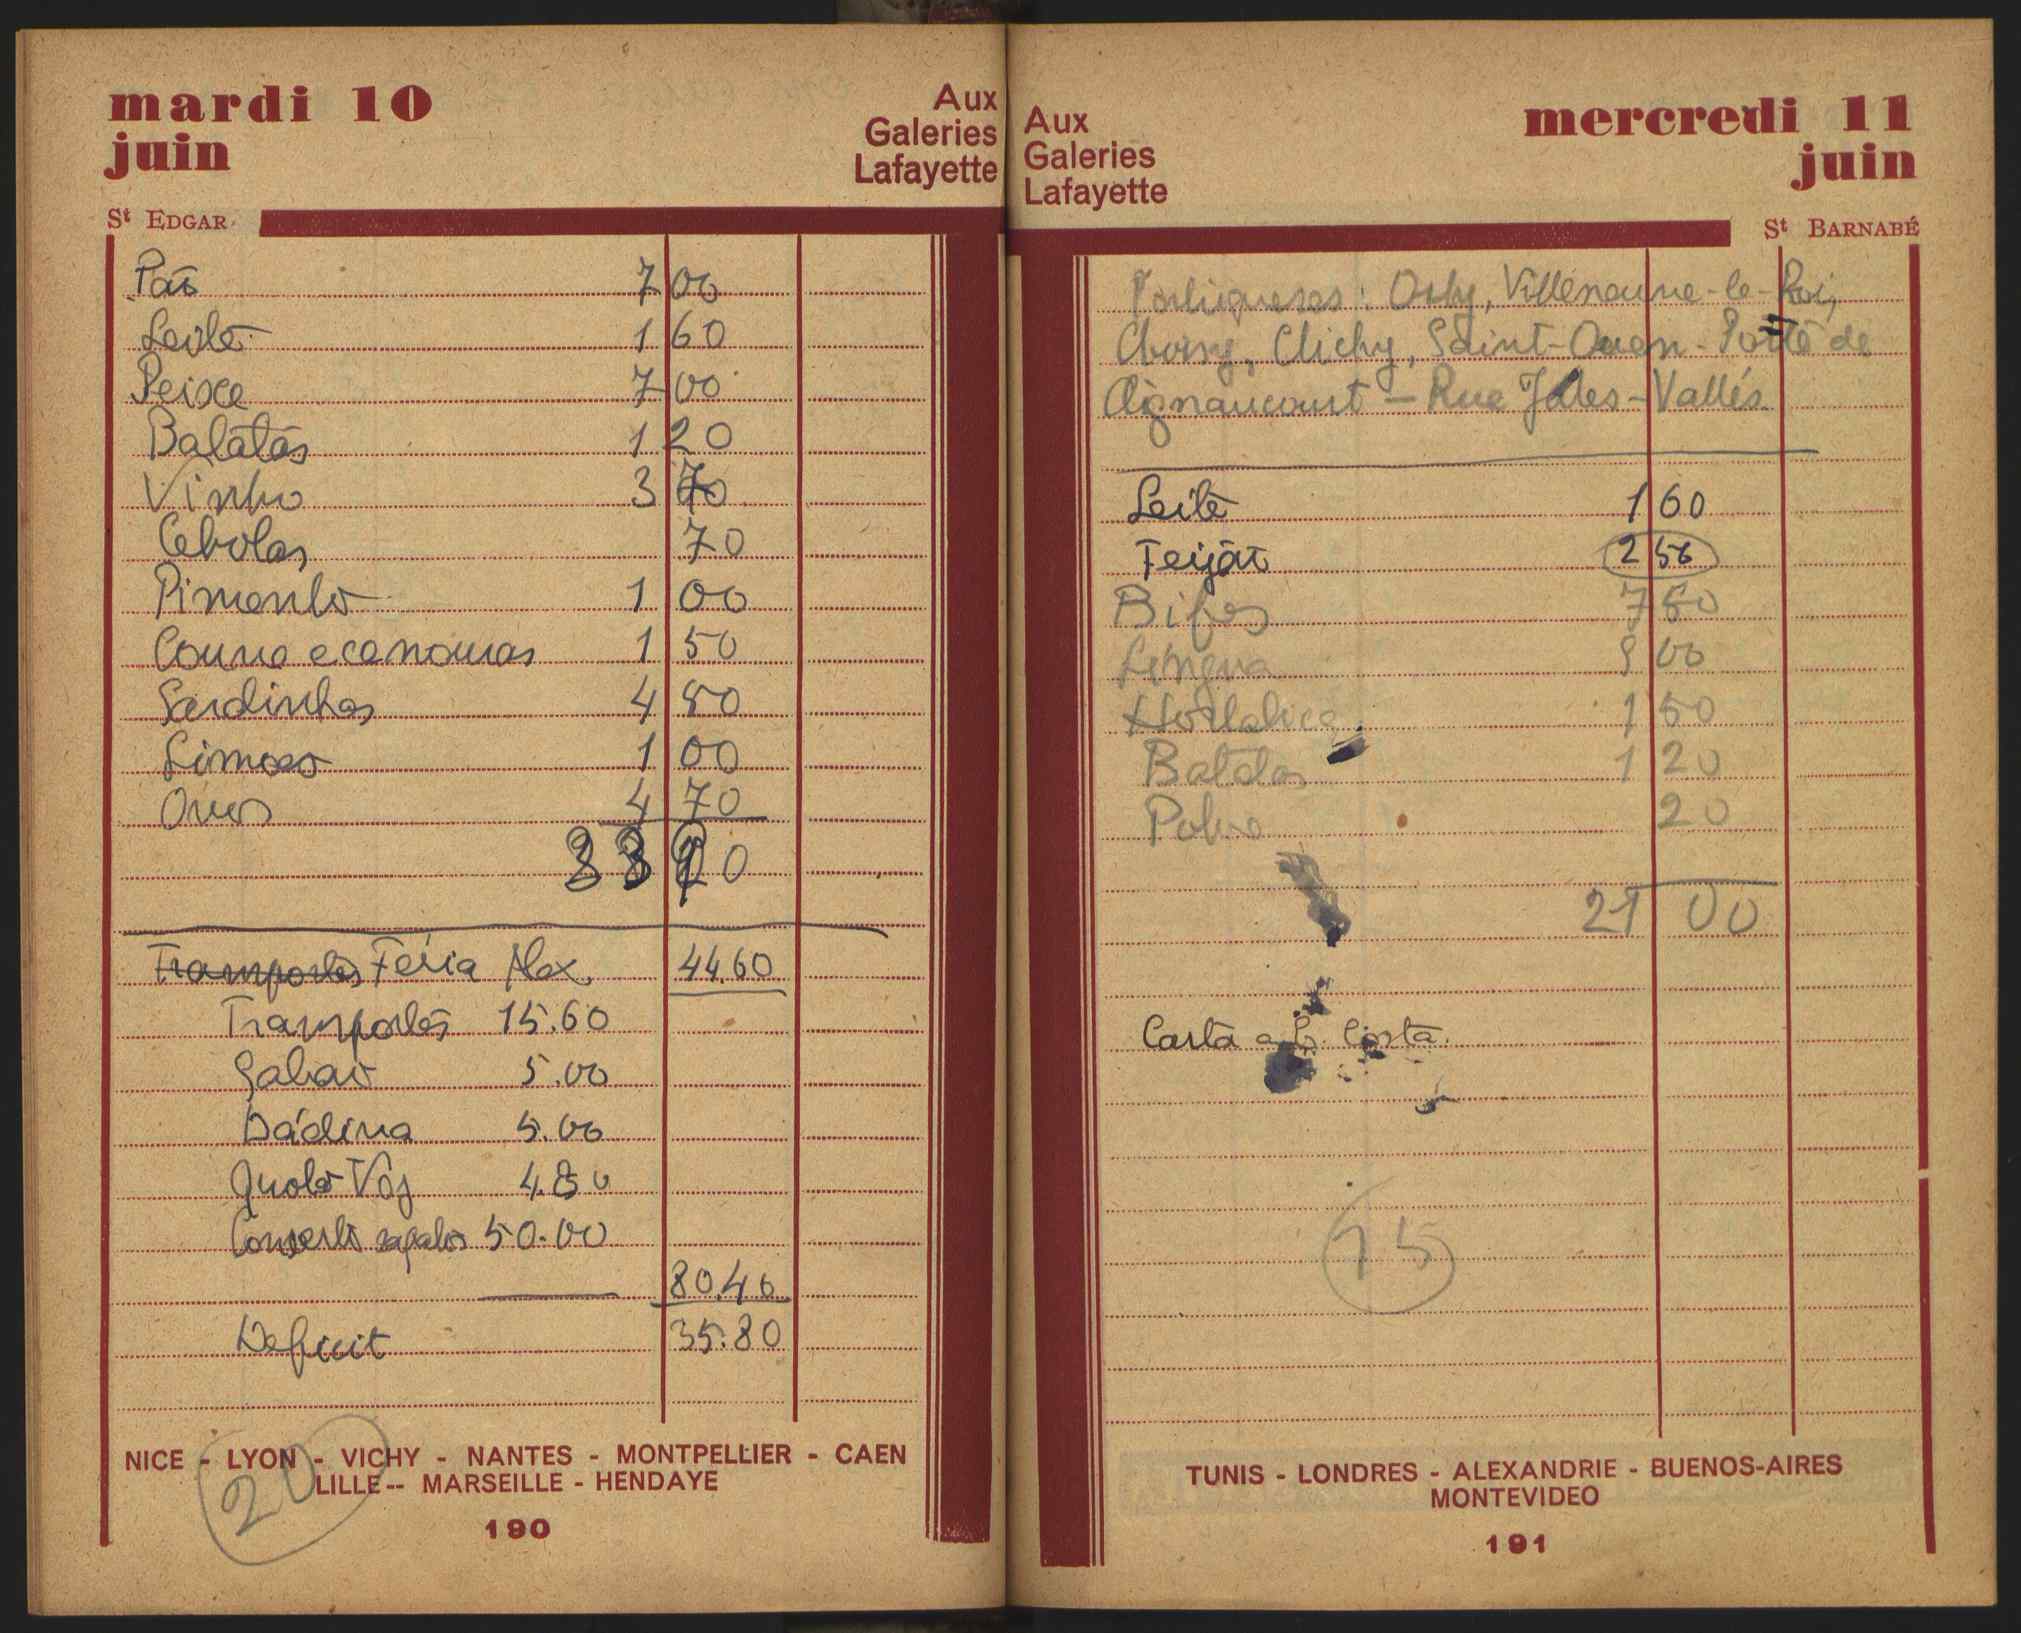 mardi 10
juin
Aux
Galeries
Lafayette
St EDGAR
Pão 7 00
Leite 1 60
Peixe 7 00
Batatas 1 20
Vinho 3 70
Cebolas 70
Pimento 1 00
Couve e cenouras 1 50
Sardinhas 4 80
Limões 1 00
Ovos 4 70
Transportes Féria Alex. 44.60
Transportes 15.60
Sabão 5.00
Dádiva 5.00
Quota Voz 4.80
Conserto sapatos 50.00
80.40
Deficit 35.80
20
NICE - LYON - VICHY - NANTES - MONTPELLIER - CAEN
LILLE -- MARSEILLE - HENDAYE
190
Aux
Galeries
Lafayette
mercredi 11
juin
St BARNABÉ
Portugueses: Orly, Villeneuve-le-Roi,
Choisy, Clichy, Saint-Ouen - Porte de
Clignancourt - Rue Jules-Vallés
Leite 1 60
Feijão 2 50
Bifes 7 50
Língua 9 00
Hortaliça 1 50
Batatas 1 20
20
21 00
Carta a Costa.
15
TUNIS - LONDRES - ALEXANDRIE - BUENOS-AIRES
MONTEVIDEO
191